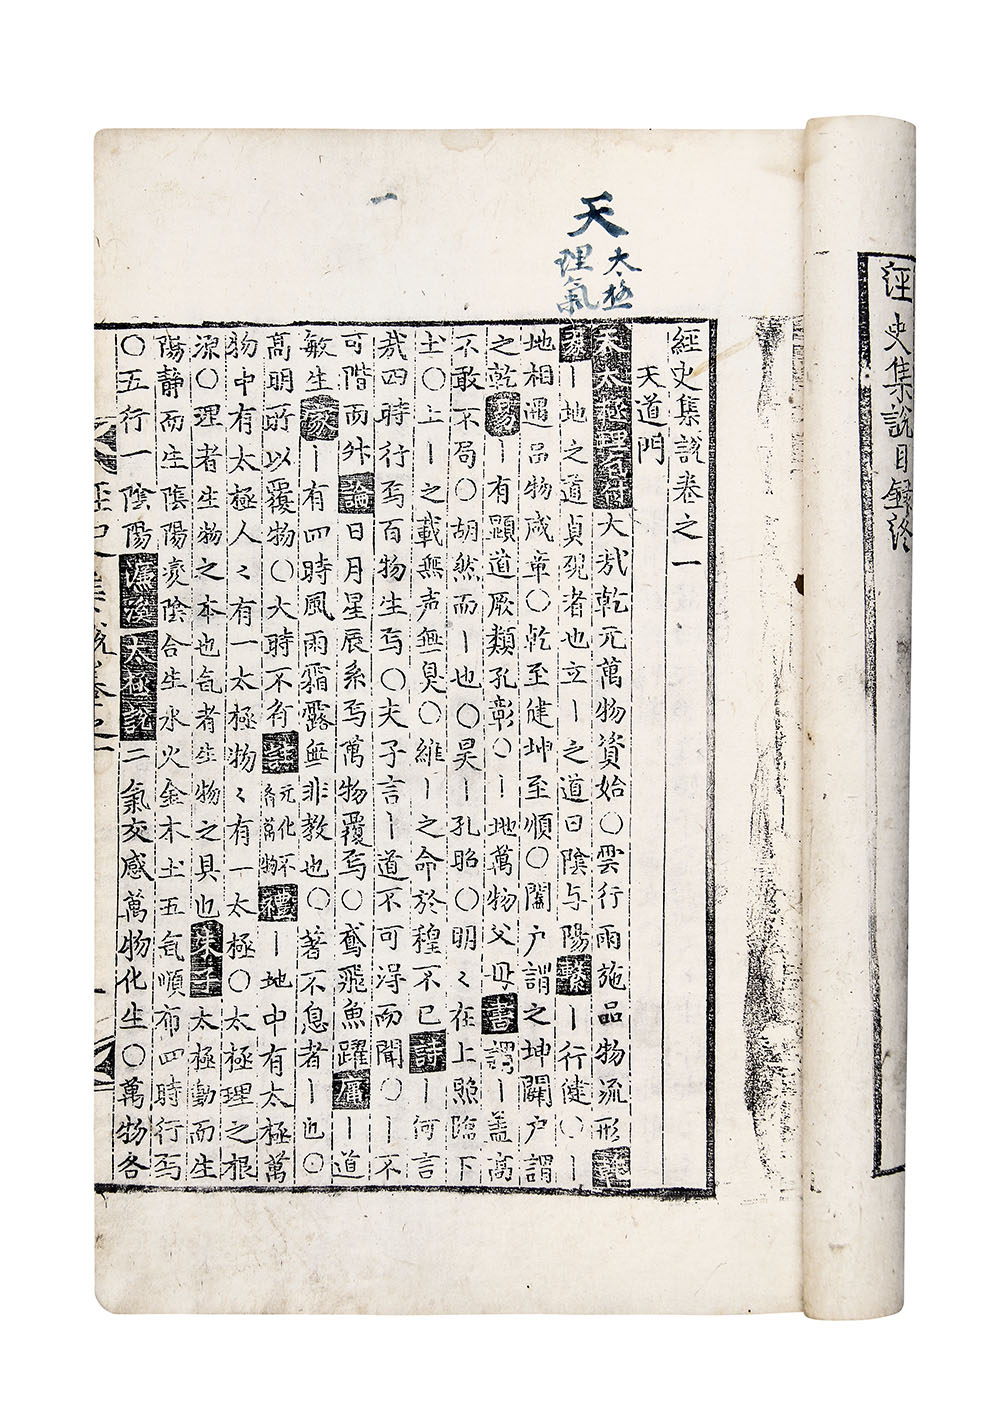 經史集說目録終
天
太極
理氣
一
經史集說卷之一
天道門
天 太極理氣付 大㢤乾元萬物資始〇雲行雨施品物流形
易丨地之道貞觀者也立丨之道曰陰与陽繫丨行健〇丨
地相遇品物咸章〇乾至健坤至順〇闔户謂之坤闢户謂
之乾易丨有顯道厥類孔彰〇丨地萬物父母書謂丨盖高
不敢不局〇胡然而丨也〇昊丨孔昭〇明〻在上照臨下
土〇上丨之載無声無臭〇維丨之命於穆不已詩丨何言
㢤四時行焉百物生焉〇夫子言丨道不可得而聞〇丨不
可階而升論日月星辰系焉萬物覆焉〇鳶飛魚躍庸丨道
敏生家丨有四時風雨霜露無非教也〇著不息者丨也〇
高明所以覆物〇大時不齊註元化不齊萬物禮丨地中有太極萬
物中有太極人〻有一太極物〻有一太極〇太極理之根
源〇理者生物之本也氣者生物之具也朱子太極動而生
陽静而生陰陽变陰合生水火金木土五氣順布四時行焉
〇五行一陰陽濂溪太極說二氣交感萬物化生〇萬物各
經史集說卷之一